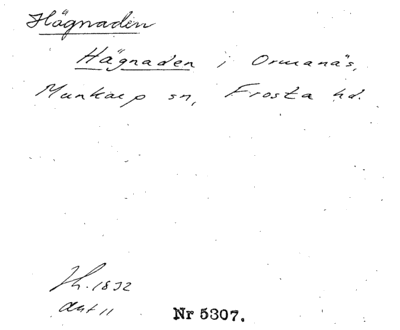 Hägnaden
Hägnaden i Ormanäs,
Munkarp sn, Frosta hd.
Sk. 1832
akt 11
Nr 5307.